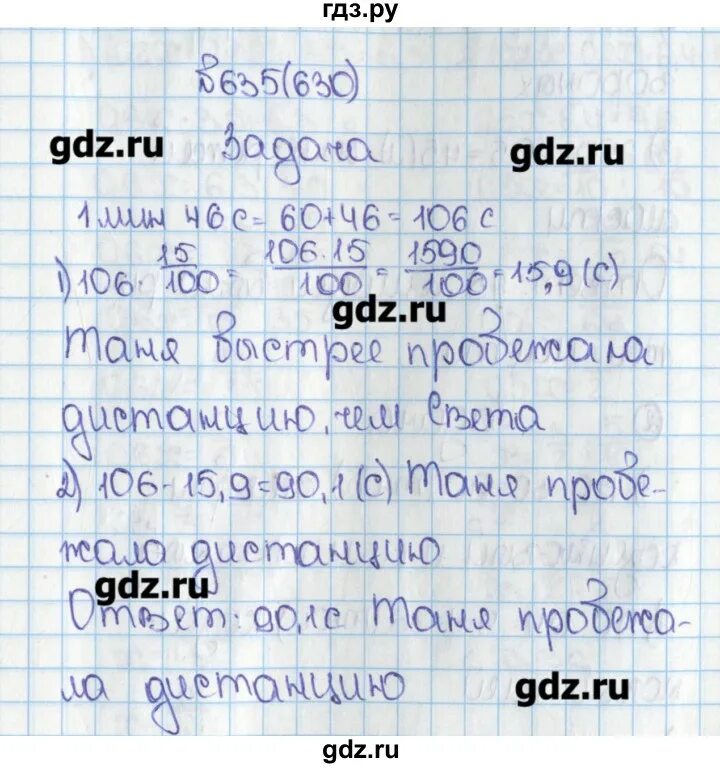 гдз.ру
№635(630)
gdz.ru Задача gdz.ru
1 мин 46 с = 60+46 = 106 с
1) 106 · 15/100 = 106·15/100 = 1590/100 = 15,9 (с)
gdz.ru
Таня быстрее пробежала
дистанцию, чем Света
2) 106 - 15,9 = 90,1 (с) Таня пробе-
жала дистанцию
gdz.ru
Ответ: 90,1с Таня пробежа-
ла дистанцию gdz.ru
gdz.ru